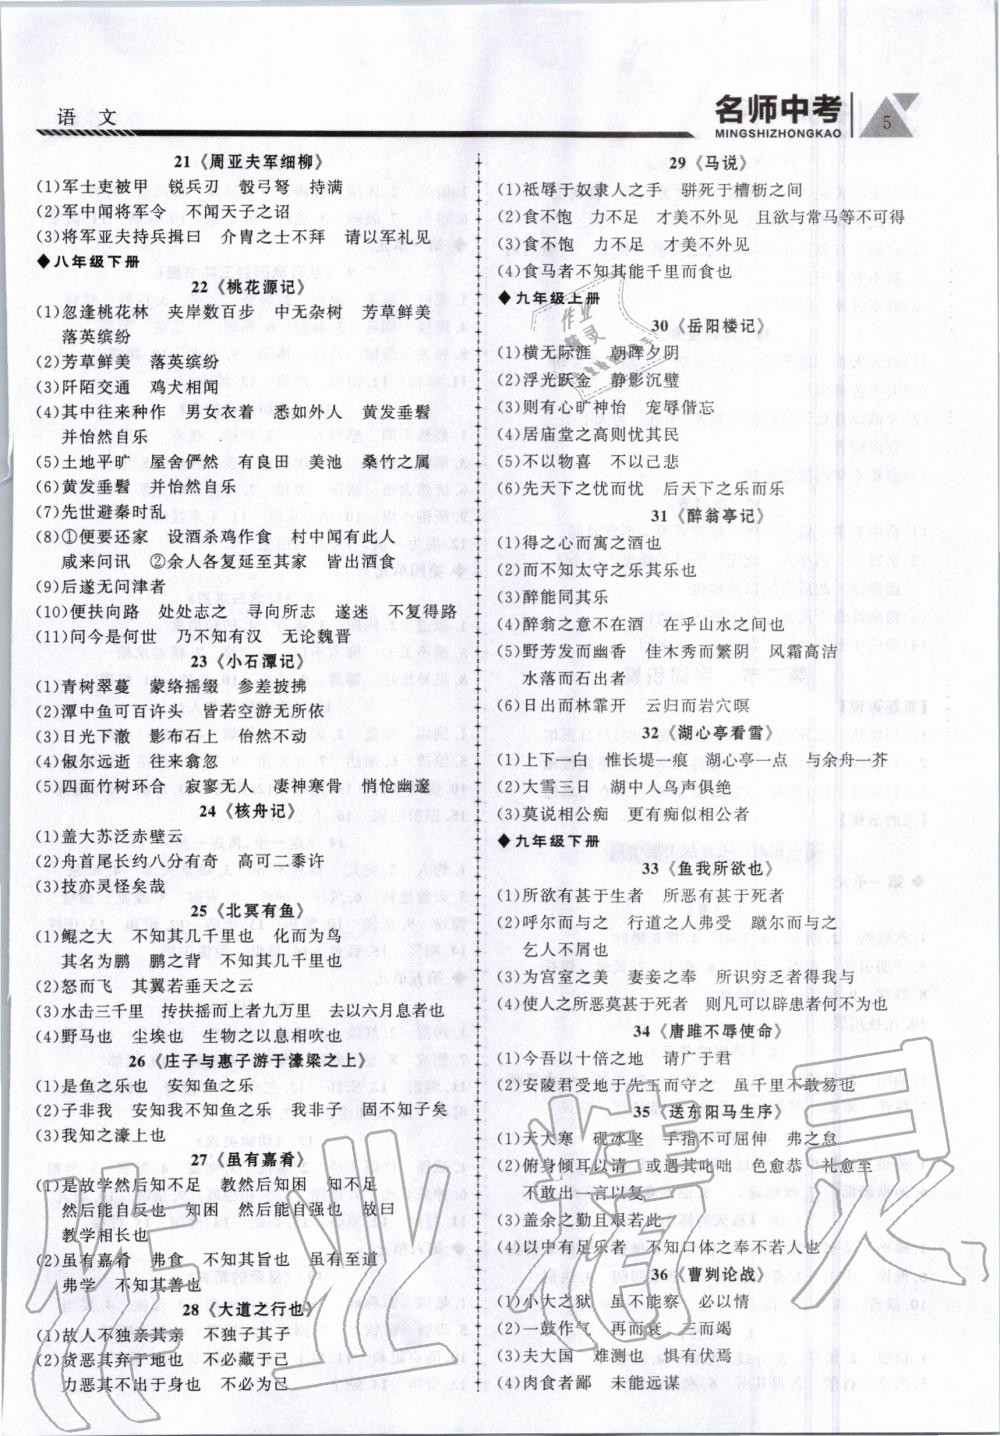 语 文
名师中考
MINGSHIZHONGKAO
5
21《周亚夫军细柳》
(1)军士吏被甲 锐兵刃 彀弓弩 持满
(2)军中闻将军令 不闻天子之诏
(3)将军亚夫持兵揖曰 介胄之士不拜 请以军礼见
◆八年级下册
22《桃花源记》
(1)忽逢桃花林 夹岸数百步 中无杂树 芳草鲜美
落英缤纷
(2)芳草鲜美 落英缤纷
(3)阡陌交通 鸡犬相闻
(4)其中往来种作 男女衣着 悉如外人 黄发垂髫
并怡然自乐
(5)土地平旷 屋舍俨然 有良田 美池 桑竹之属
(6)黄发垂髫 并怡然自乐
(7)先世避秦时乱
(8)①便要还家 设酒杀鸡作食 村中闻有此人
咸来问讯 ②余人各复延至其家 皆出酒食
(9)后遂无问津者
(10)便扶向路 处处志之 寻向所志 遂迷 不复得路
(11)问今是何世 乃不知有汉 无论魏晋
23《小石潭记》
(1)青树翠蔓 蒙络摇缀 参差披拂
(2)潭中鱼可百许头 皆若空游无所依
(3)日光下澈 影布石上 佁然不动
(4)俶尔远逝 往来翕忽
(5)四面竹树环合 寂寥无人 凄神寒骨 悄怆幽邃
24《核舟记》
(1)盖大苏泛赤壁云
(2)舟首尾长约八分有奇 高可二黍许
(3)技亦灵怪矣哉
25《北冥有鱼》
(1)鲲之大 不知其几千里也 化而为鸟
其名为鹏 鹏之背 不知其几千里也
(2)怒而飞 其翼若垂天之云
(3)水击三千里 抟扶摇而上者九万里 去以六月息者也
(4)野马也 尘埃也 生物之以息相吹也
26《庄子与惠子游于濠梁之上》
(1)是鱼之乐也 安知鱼之乐
(2)子非我 安知我不知鱼之乐 我非子 固不知子矣
(3)我知之濠上也
27《虽有嘉肴》
(1)是故学然后知不足 教然后知困 知不足
然后能自反也 知困 然后能自强也 故曰
教学相长也
(2)虽有嘉肴 弗食 不知其旨也 虽有至道
弗学 不知其善也
28《大道之行也》
(1)故人不独亲其亲 不独子其子
(2)货恶其弃于地也 不必藏于己
力恶其不出于身也 不必为己
29《马说》
(1)祇辱于奴隶人之手 骈死于槽枥之间
(2)食不饱 力不足 才美不外见 且欲与常马等不可得
(3)食不饱 力不足 才美不外见
(4)食马者不知其能千里而食也
◆九年级上册
30《岳阳楼记》
(1)横无际涯 朝晖夕阴
(2)浮光跃金 静影沉璧
(3)则有心旷神怡 宠辱偕忘
(4)居庙堂之高则忧其民
(5)不以物喜 不以己悲
(6)先天下之忧而忧 后天下之乐而乐
31《醉翁亭记》
(1)得之心而寓之酒也
(2)而不知太守之乐其乐也
(3)醉能同其乐
(4)醉翁之意不在酒 在乎山水之间也
(5)野芳发而幽香 佳木秀而繁阴 风霜高洁
水落而石出者
(6)日出而林霏开 云归而岩穴暝
32《湖心亭看雪》
(1)上下一白 惟长堤一痕 湖心亭一点 与余舟一芥
(2)大雪三日 湖中人鸟声俱绝
(3)莫说相公痴 更有痴似相公者
◆九年级下册
33《鱼我所欲也》
(1)所欲有甚于生者 所恶有甚于死者
(2)呼尔而与之 行道之人弗受 蹴尔而与之
乞人不屑也
(3)为宫室之美 妻妾之奉 所识穷乏者得我与
(4)使人之所恶莫甚于死者 则凡可以辟患者何不为也
34《唐雎不辱使命》
(1)今吾以十倍之地 请广于君
(2)安陵君受地于先王而守之 虽千里不敢易也
35《送东阳马生序》
(1)天大寒 砚冰坚 手指不可屈伸 弗之怠
(2)俯身倾耳以请 或遇其叱咄 色愈恭 礼愈至
不敢出一言以复
(3)盖余之勤且艰若此
(4)以中有足乐者 不知口体之奉不若人也
36《曹刿论战》
(1)小大之狱 虽不能察 必以情
(2)一鼓作气 再而衰 三而竭
(3)夫大国 难测也 惧有伏焉
(4)肉食者鄙 未能远谋
作业精灵